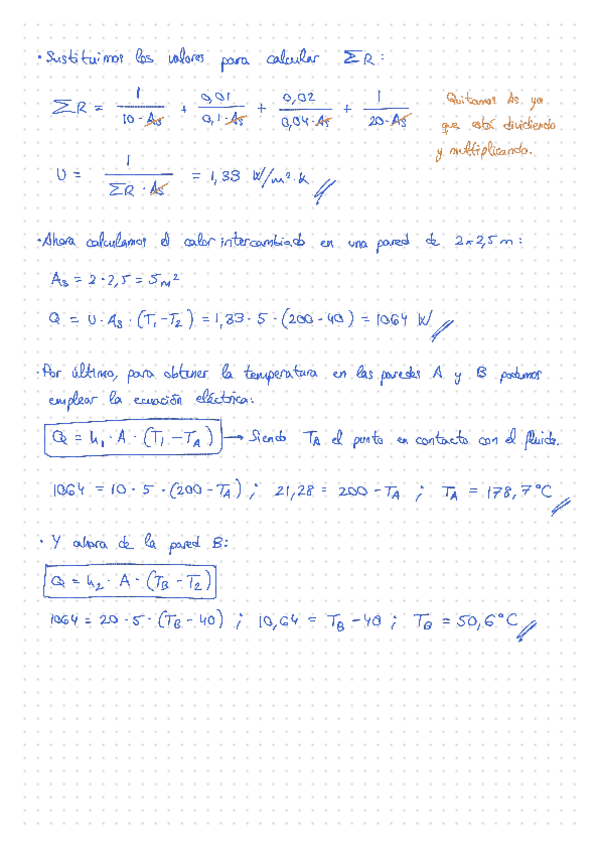 · Sustituimos los valores para calcular ΣR:
ΣR = 1 / (10 · As) + 0,01 / (0,1 · As) + 0,02 / (0,04 · As) + 1 / (20 · As)
Quitamos As ya
que está dividiendo
y multiplicando.
U = 1 / (ΣR · As) = 1,33 W/m² · K
· Ahora calculamos el calor intercambiado en una pared de 2x2,5m:
As = 2 · 2,5 = 5m²
Q = U · As · (T₁ - T₂) = 1,33 · 5 · (200 - 40) = 1064 W
· Por último, para obtener la temperatura en las paredes A y B podemos
emplear la ecuación eléctrica:
Q = h₁ · A · (T₁ - TA) → Siendo TA el punto en contacto con el fluido.
1064 = 10 · 5 · (200 - TA) ; 21,28 = 200 - TA ; TA = 178,7°C
· Y ahora de la pared B:
Q = h₂ · A · (TB - T₂)
1064 = 20 · 5 · (TB - 40) ; 10,64 = TB - 40 ; TB = 50,6°C